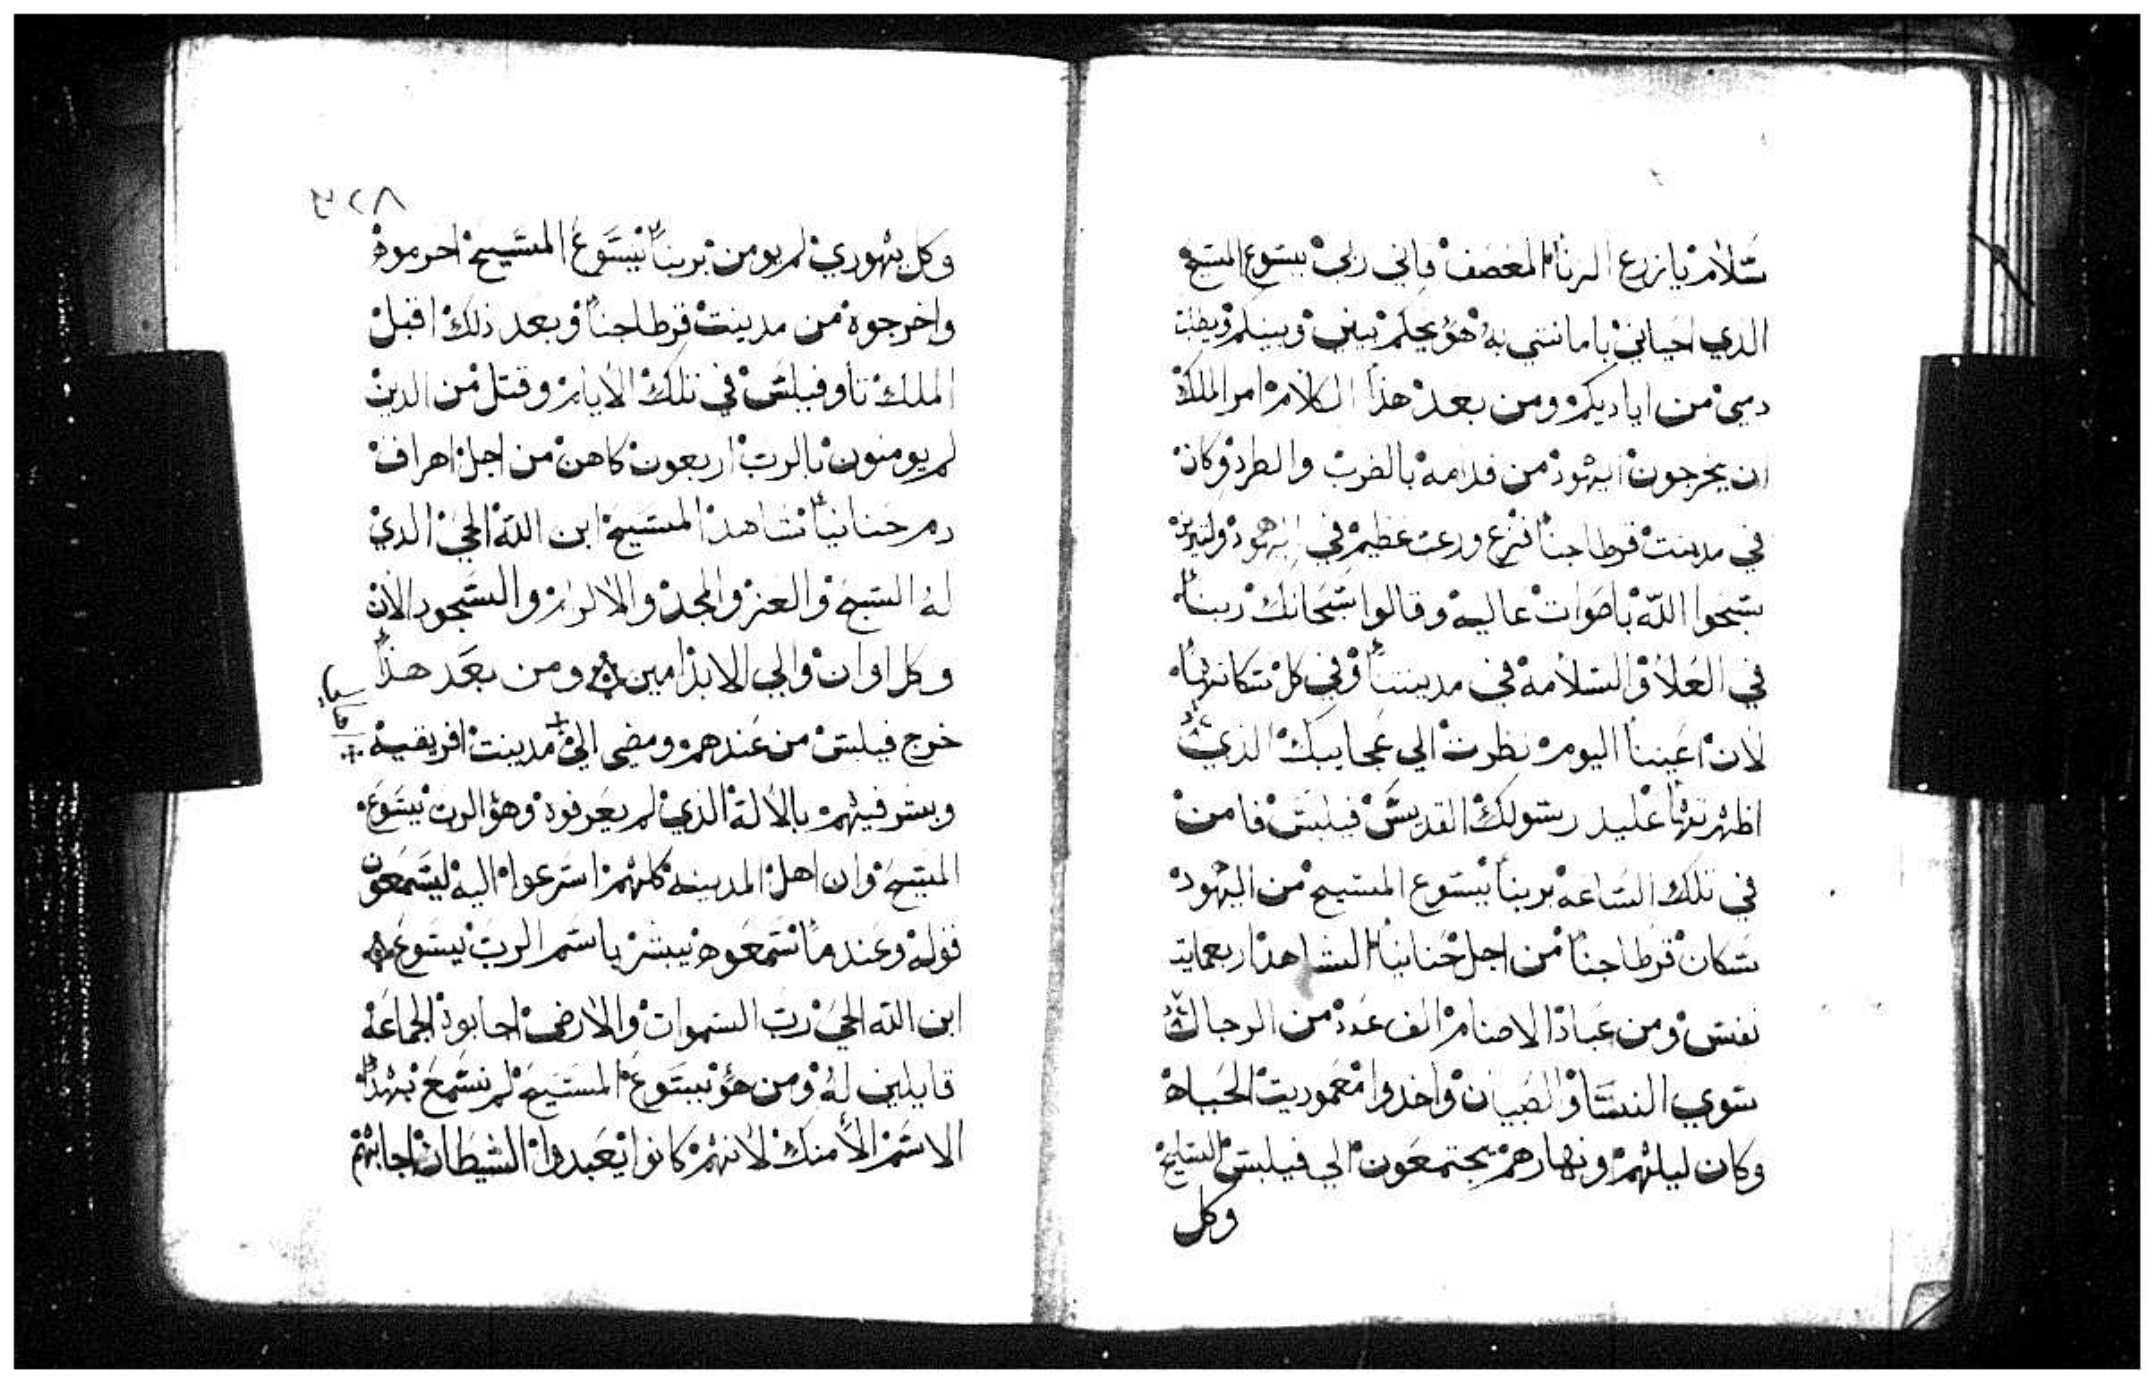 سلام يا زرع الزنا المغصف فاني ربي يسوع المسيح
الذي احياني بامانتي به هو يحكم بيني وبينكم ويطلب
دمي من اياديكم ومن بعد هذا الكلام امر الملك
ان يخرجون اليهود من قدامه بالضرب والطرد وكان
في مدينت قرطاجنا فزع ورعب عظيم في اليهود وكثيرين
يسبحوا الله باصوات عاليه وقالوا سبحانك ربنا
في العلا والسلامه في مدينتنا وفي كل سكانها
لان اعيننا اليوم نظرت الي عجايبك الذي
اظهرتها علي يد رسولك القديس فيلبس فامن
في تلك الساعه بربنا يسوع المسيح من اليهود
سكان قرطاجنا من اجل حنانيا الشاهد اربعمايت
نفس ومن عباد الاصنام الف عدد من الرجال
سوي النسا والصبيان واخدوا معموديت الحياه
وكان ليلهم ونهارهم يجتمعون الي فيلبس السليح
وكل
٨٢
وكل يهودي لم يومن بربنا يسوع المسيح احرموه
واخرجوه من مدينت قرطاجنا وبعد ذلك اقبل
الملك تاوفيلس في تلك الايام وقتل من الدين
لم يومنون بالرب اربعون كاهن من اجل اهراق
دم حنانيا شاهد المسيح ابن الله الحي الدي
له السبح والعز والمجد والاكرام والسجود الان
وكل اوان والي الابد امين ومن بعد هذا
خرج فيلبس من عندهم ومضي الي مدينت افريقيه
وبشر فيهم بالالاه الذي لم يعرفوه وهو الرب يسوع
المسيح وان اهل المدينه كلهم اسرعوا اليه ليسمعون
قوله وعند ما سمعوه يبشر باسم الرب يسوع
ابن الله الحي رب السموات والارض اجابوه الجماعه
قايلين له ومن هو يسوع المسيح لم نسمع بهذا
الاسم الا منك لانهم كانوا يعبدوا الشيطان اجابهم